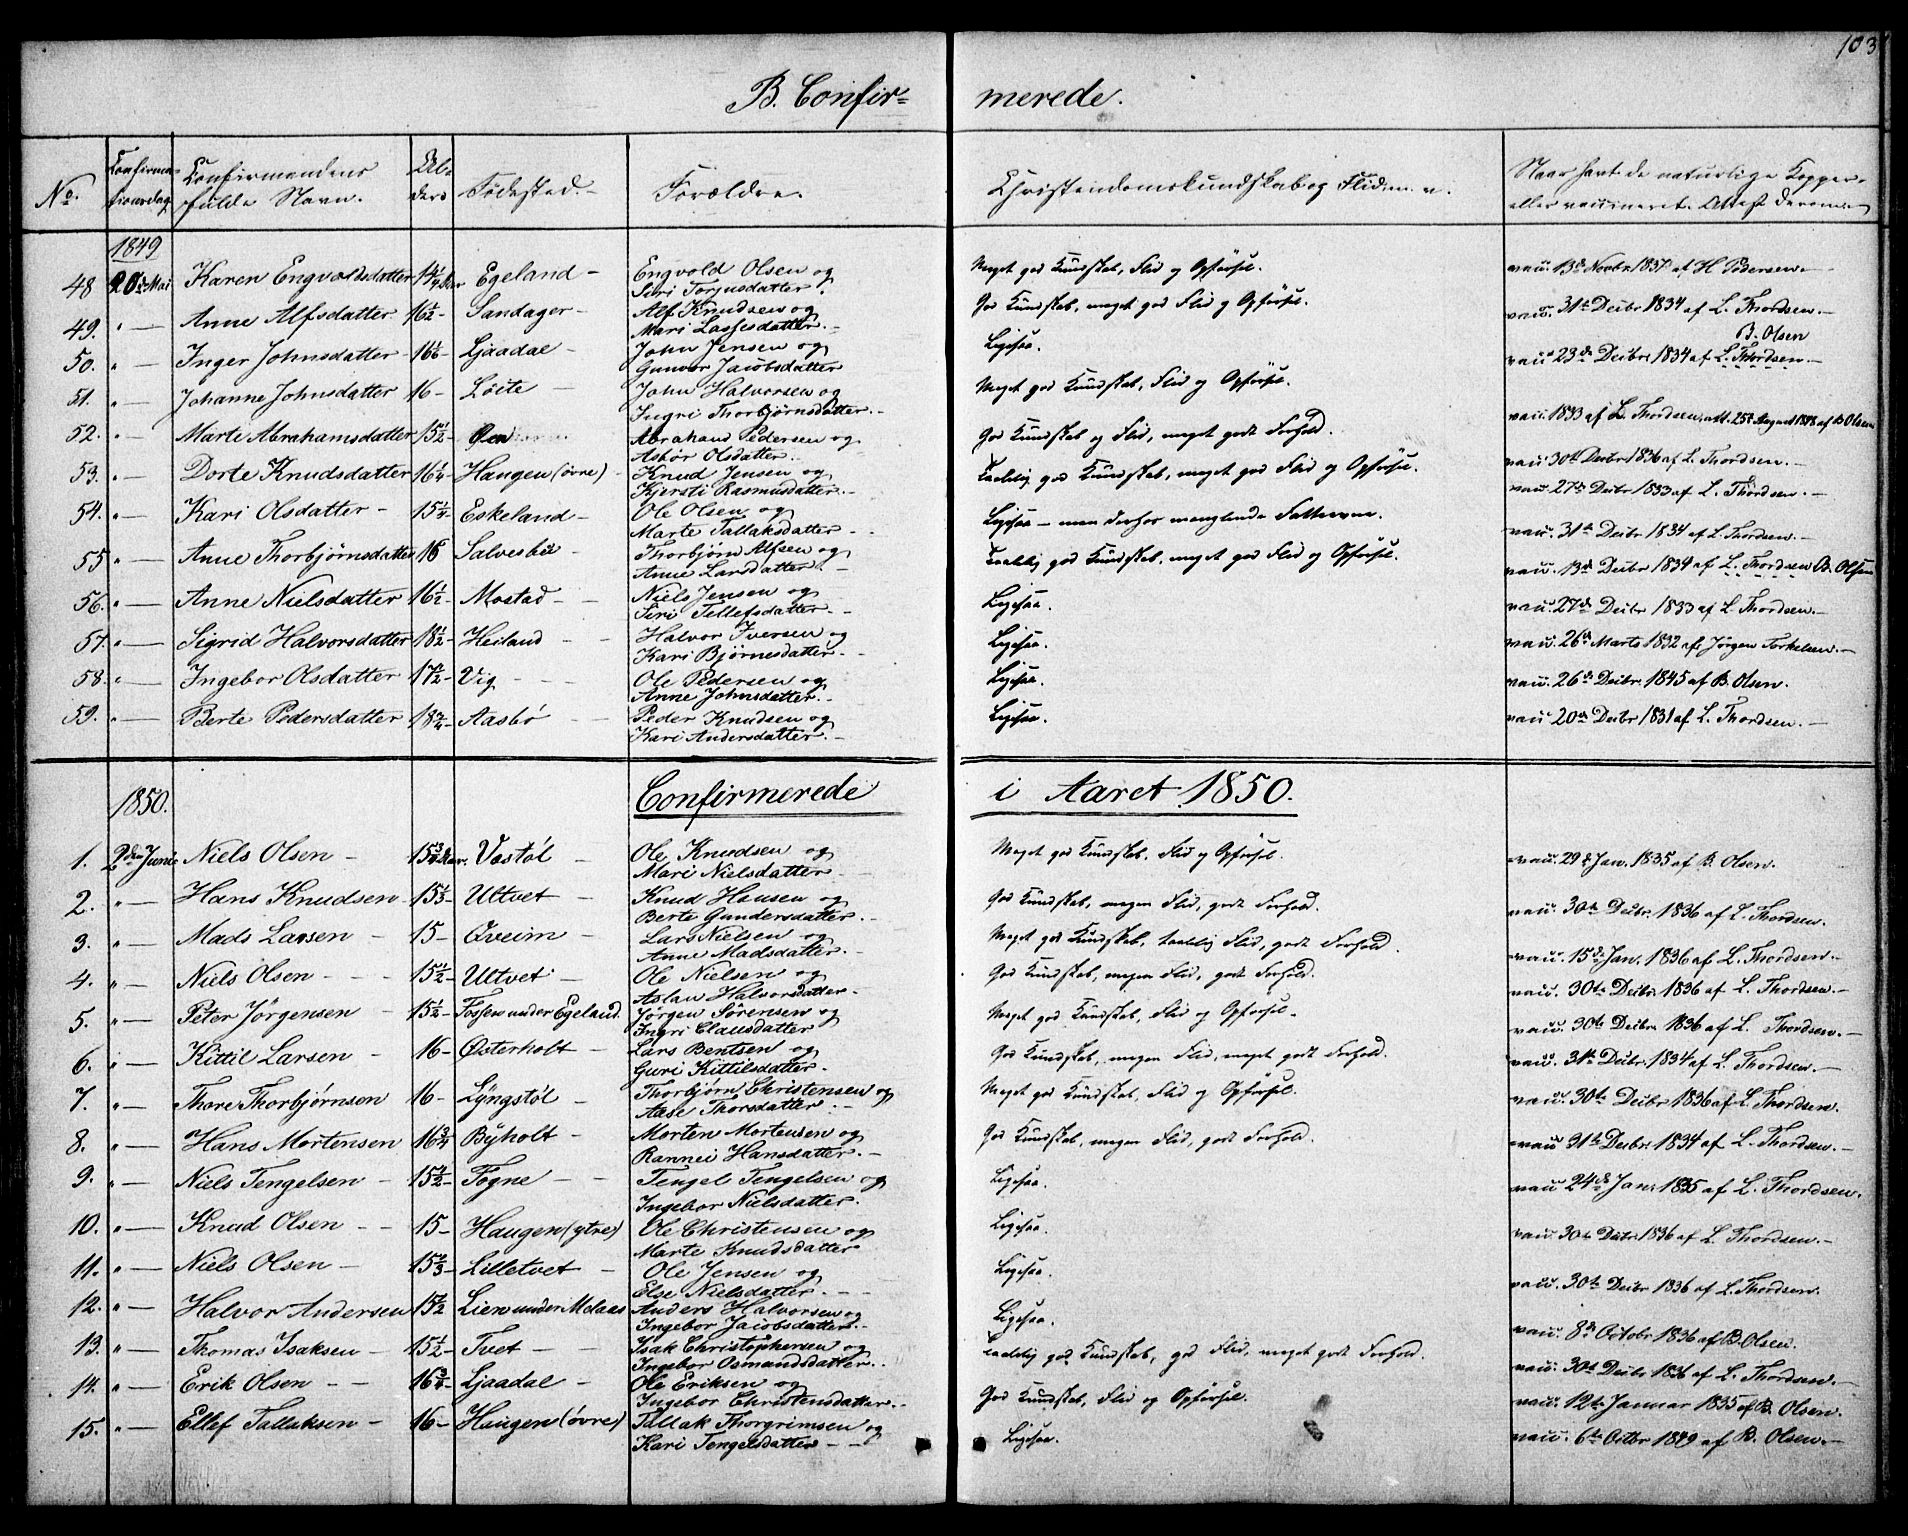 103
B. Confirmerede.
No. Confirmationsdag Confirmandens fulde Navn. Alders Födested. Forældre. Christendomskundskab og Flid m. v. Naar havt de naturlige Kopper eller vaccineret. Attest derom.
1849
48 20de Mai Karen Engvoldsdatter 14¼ Aar Egeland - Engvold Olsen og Siri Torjusdatter. Meget god Kundskab, Flid og Opførsel. vacc. 13de Novbr 1837 af H Pedersen. -
49. " — Anne Alfsdatter 16½ - Sandager - Alf Knudsen og Mari Lassesdatter. - God Kundskab, meget god Flid og Opførsel. vacc. 31te Decbr 1834 af L. Thordsen. -
50. " — Inger Johnsdatter - Ljaadal - John Jensen og Gunvor Jacobsdatter Ligesaa. vacc 23de Decbr. 1834 af L. Thordsen. - B. Olsen
51. " — Johanne Johnsdatter 16 - Löite - John Halvorsen og Ingri Thorbjørnsdatter. - Meget god Kundskab, Flid og Opførsel. vacc. 1833 af L. Thordsen, att. 25de August 1848 af B Olsen
52. " — Marte Abrahamsdatter 15½ - Abraham Pedersen og Asbør Olsdatter. - God Kundskab og Flid, meget godt Forhold. vacc 30te Decbr 1836 af L. Thordsen. -
53. " — Dorte Knudsdatter 16¼ - Haugen (övre) - Knud Jensen og Kjersti Rasmusdatter. - Taalelig god Kundskab, meget god Flid og Opførsel. vacc. 27de Decbr 1833 af L. Thordsen. -
54. " — Kari Olsdatter - Eskeland - Ole Olsen og Marte Tallaksdatter. - Ligesaa - men derhos manglende Fatteevne. vacc. 31te Decbr 1834 af L. Thordsen. -
55 " — Anne Thorbjørnsdatter 16 Salvesbu - Thorbjørn Alfsen og Anne Larsdatter. - Taalelig god Kundskab, meget god Flid og Opførsel. vacc. 13de Decbr 1834 af L. Thordsen B. Olsen
56. " — Anne Nielsdatter 16½ - Mostad - Niels Jensen og Siri Tellefsdatter. - Ligesaa. vacc 27de Decbr 1833 af L. Thordsen. -
57. " — Sigrid Halvorsdatter 18½ - Heiland - Halvor Iversen og Kari Bjørnesdatter. - Ligesaa. vacc. 26de Marts 1832 af Jørgen Torkelsen. -
58. " — Ingebor Olsdatter 17½ - Vig - Ole Pedersen og Anne Johnsdatter. - Ligesaa. vacc. 26de Decbr. 1845 af B. Olsen.
59. " — Berte Pedersdatter Aasbø - Peder Knudsen og Kari Andersdatter. - Ligesaa. vacc 20de Decbr 1831 af L. Thordsen. -
1850. Confirmerede i Aaret 1850.
1. 2den Juni Niels Olsen - Vastøl - Ole Knudsen og Mari Nielsdatter. - Meget god Kundskab, Flid og Opførsel. vacc. 29de Jan. 1835 af B. Olsen.
2. " — Hans Knudsen - 15⅓ - Ultvet - Knud Hansen og Berte Gundersdatter. - God Kundskab, megen Flid, godt Forhold. vacc. 30te Decbr. 1836 af L. Thordsen.
3. " — Mads Larsen - 15 - Øveim - Lars Nielsen og Anne Madsdatter. - Meget god Kundskab, taalelig Flid, godt Forhold. vacc. 15de Jan. 1836 af L. Thordsen. -
4. " — Niels Olsen - - 15½ - Ultvet - Ole Nielsen og Aslau Halvorsdatter. - God Kundskab, megen Flid, godt Forhold. vacc. 30te Decbr. 1836 af L. Thordsen. -
5. " — Peter Jørgensen - 15½ - Fosen under Egeland. Jørgen Sørensen og Ingri Clausdatter Meget god Kundskab, Flid og Opførsel. vacc. 30te Decbr. 1836 af L. Thordsen. -
6. " — Kittil Larsen - 16 - Østerholt - Lars Bentsen og Guri Kittilsdatter. God Kundskab, megen Flid, meget godt Forhold. vacc. 31te Decbr. 1834 af L. Thordsen. -
7. " — Thore Thorbjørnsen 16 - Lyngstøl - Thorbjørn Christensen og Aase Thorsdatter. - Meget god Kundskab, Flid og Opførsel. vacc. 30te Decbr 1836 af L. Thordsen.
8. " — Hans Mortensen 16¾ Byholt - Morten Mortensen og Rannei Hansdatter. - God Kundskab, megen Flid, godt Forhold. vacc 31te Decbr. 1834 af L. Thordsen. -
9. " — Niels Tengelsen - 15½ - Fogne - - Tengel Tengelsen og Ingebor Nielsdatter. Ligesaa. vacc 24de Jan. 1835 af L. Thordsen.
10. " — Knud Olsen - - 15 - Haugen (ytre) - Ole Christensen og Marte Knudsdatter Ligesaa. vacc. 30te Decbr. 1836 af L. Thordsen. -
11. " — Niels Olsen - Lilletvet - Ole Jensen og Else Nielsdatter. - Ligesaa. vacc. 30te Decbr 1836 af L. Thordsen.
12. " — Halvor Andersen 15½ Lien under Melaas Anders Halvorsen og Ingebor Jacobsdatter. - Ligesaa. vacc. 8de Octobr 1836 af B. Olsen.
13. " — Thomas Isaksen - 15½ - Tvet - - Isak Christophersen og Ingebor Osmundsdatter. Taalelig god Kundskab, god Flid, meget godt Forhold. vacc. 30te Decbr 1836 af L. Thordsen. -
14. " — Erik Olsen - - 16¾ - Ljaadal - Ole Eriksen og Ingebor Christensdatter. God Kundskab, Flid og Opførsel. vacc. 12te Januar 1835 af B. Olsen.
15. " — Ellef Tallaksen - 16 - Haugen (övre) Tallak Thorgrimsen og Kari Tengelsdatter - - Ligesaa. vacc. 6te Octbr 1849 af B. Olsen. -